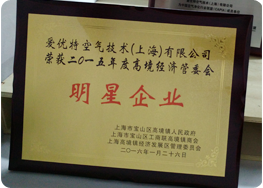 爱优特空气技术(上海)有限公司
荣获二〇一五年度高境经济管委会
明星企业
上海市宝山区高境镇人民政府
上海市宝山区工商联高境镇商会
上海高境镇经济发展区管理委员会
二〇一六年一月二十六日